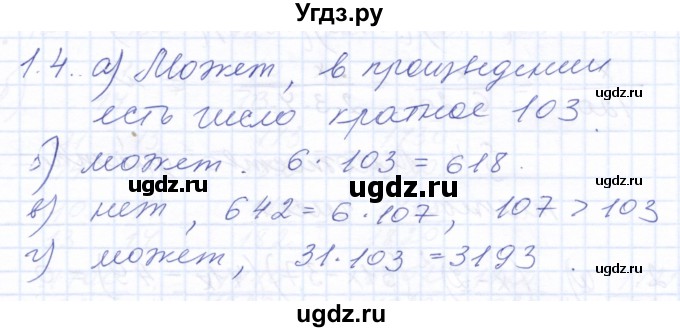 Угдз.ру
1.4. а) Может, в произведении
есть число кратное 103.
б) может. 6 · 103 = 618.
в) нет, 642 = 6 · 107, 107 > 103
г) может, 31 · 103 = 3193.
ugdz.ru
ugdz.ru
ugdz.ru
ugdz.ru
ugdz.ru
ugdz.ru
ugdz.ru